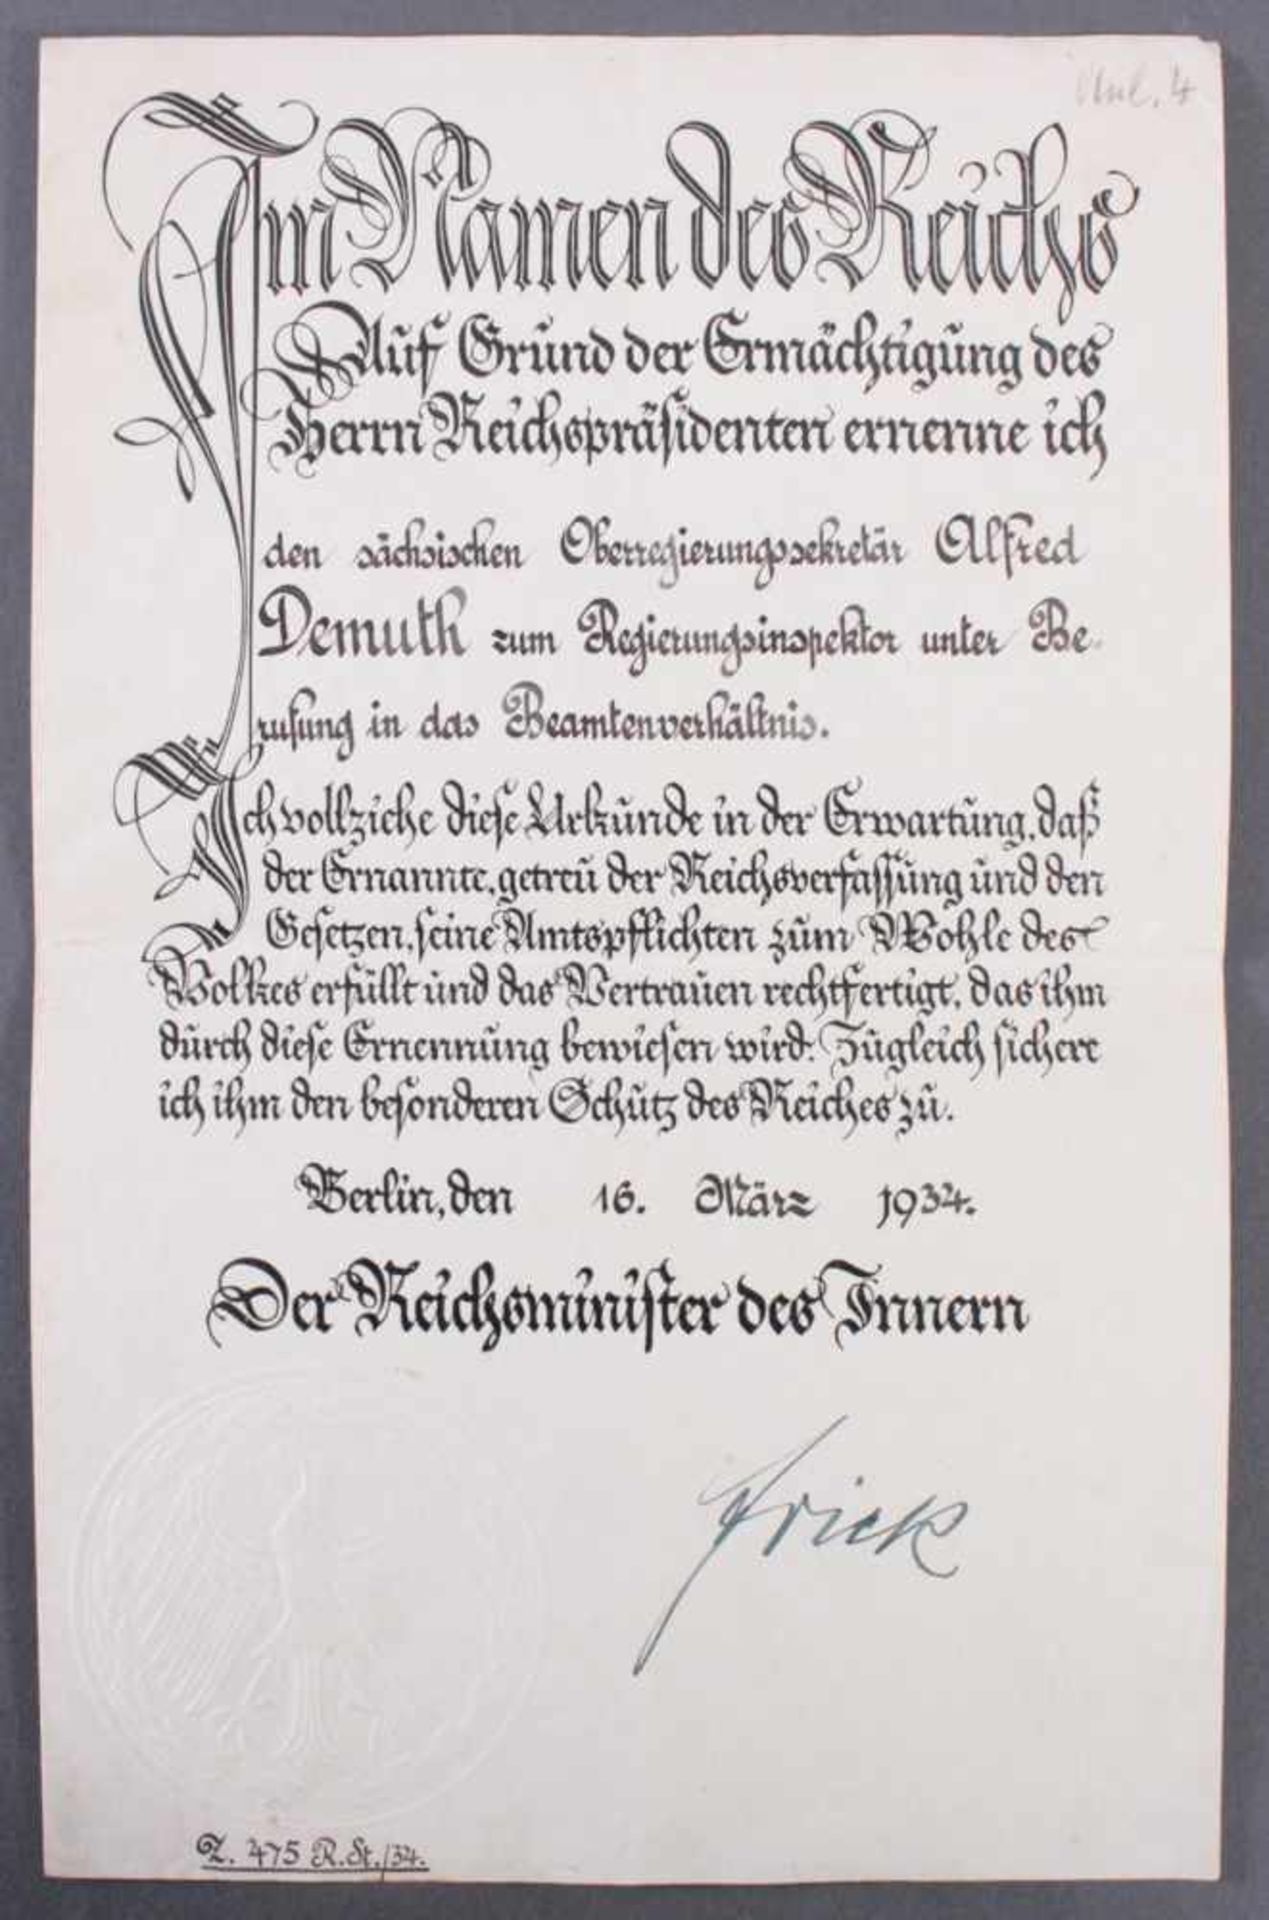 Anl. 4
Im Namen des Reichs
Auf Grund der Ermächtigung des
Herrn Reichspräsidenten ernenne ich
den sächsischen Oberregierungssekretär Alfred
Demuth zum Regierungsinspektor unter Be-
rufung in das Beamtenverhältnis.
Ich vollziehe diese Urkunde in der Erwartung, daß
der Ernannte, getreu der Reichsverfassung und den
Gesetzen, seine Amtspflichten zum Wohle des
Volkes erfüllt und das Vertrauen rechtfertigt, das ihm
durch diese Ernennung bewiesen wird. Zugleich sichere
ich ihm den besonderen Schutz des Reiches zu.
Berlin, den 16. März 1934.
Der Reichsminister des Innern
Frick
Z. 475 R.St./34.